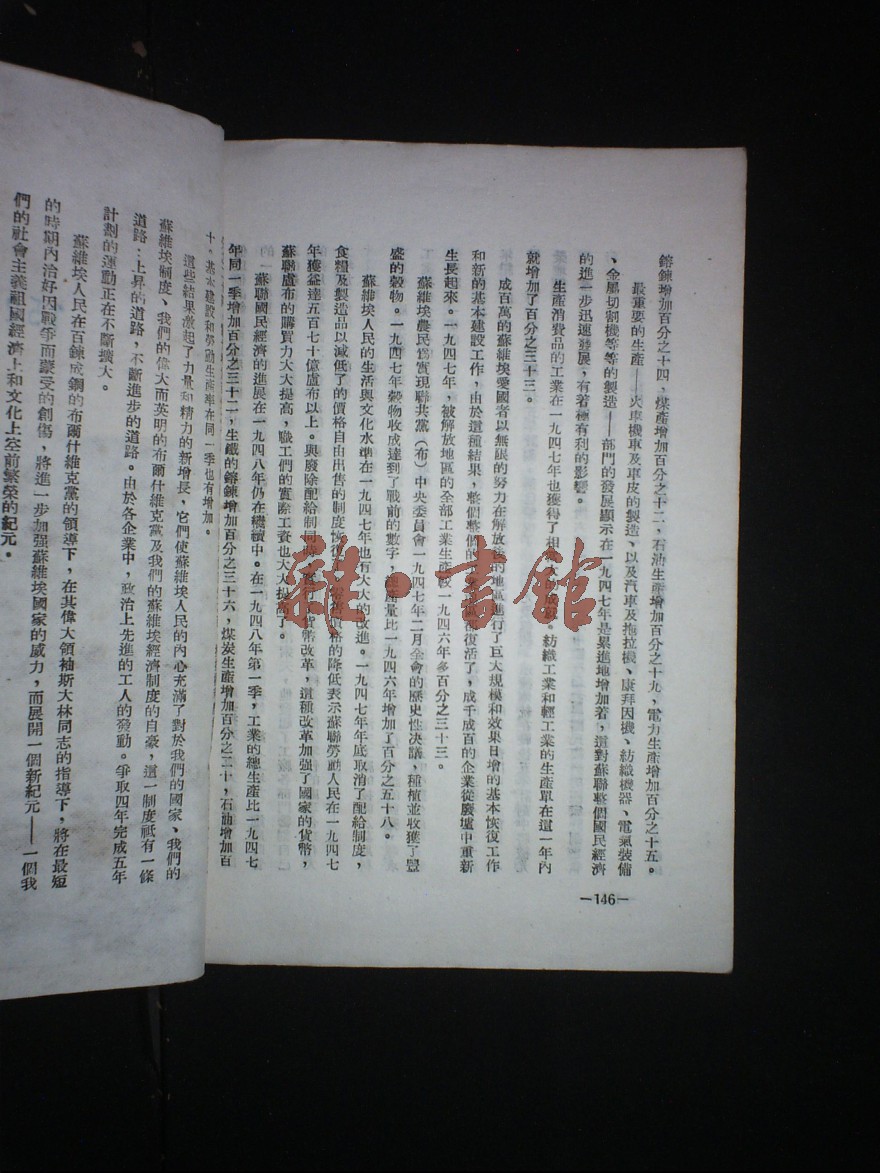 鎔鍊增加百分之十四、煤產增加百分之十二、石油生產增加百分之十九、電力生產增加百分之十五。
最重要的生產——火車機車及車皮的製造、以及汽車及拖拉機、康拜因機、紡織機器、電氣裝備
、金屬切割機等等的製造——部門的發展顯示在一九四七年是累進地增加著，這對蘇聯整個國民經濟
的進一步迅速發展，有着極有利的影響。
生產消費品的工業在一九四七年也獲得了相。紡織工業和輕工業的生產單在這一年內
就增加了百分之三十三。
成百萬的蘇維埃愛國者以無限的努力在解放後的地區進行了巨大規模和效果日增的基本恢復工作
和新的基本建設工作，由於這種結果，整個整個的都復活了，成千成百的企業從廢墟中重新
生長起來。一九四七年，被解放地區的全部工業生產較一九四六年多百分之三十三。
蘇維埃農民爲實現聯共黨（布）中央委員會一九四七年二月全會的歷史性決議，種植並收獲了豐
盛的穀物。一九四七年穀物收成達到了戰前的數字，產量比一九四六年增加了百分之五十八。
蘇維埃人民的生活與文化水準在一九四七年也有大大的改進。一九四七年年底取消了配給制度，
食糧及製造品以減低了的價格自由出售的制度恢復格的降低表示蘇聯勞動人民在一九四七
年獲益達五百七十億盧布以上。與廢除配給制同時貨幣改革，這種改革加强了國家的貨幣，
蘇聯盧布的購買力大大提高，職工們的實際工資也大大提高了。
蘇聯國民經濟的進展在一九四八年仍在繼續中。在一九四八年第一季，工業的總生產比一九四七
年同一季增加百分之三十二，生鐵的鎔鍊增加百分之三十六，煤炭生產增加百分之二十，石油增加百
十。基本建設和勞動生產率在同一季也有增加。
這些結果激起了力量和精力的新增長，它們使蘇維埃人民的內心充滿了對於我們的國家、我們的
蘇維埃制度、我們的偉大而英明的布爾什維克黨及我們的蘇維埃經濟制度的自豪，這一制度祇有一條
道路：上昇的道路，不斷進步的道路。由於各企業中，政治上先進的工人的發動。爭取四年完成五年
計劃的運動正在不斷擴大。
蘇維埃人民在百鍊成鋼的布爾什維克黨的領導下，在其偉大領袖斯大林同志的指導下，將在最短
的時期內治好因戰爭而蒙受的創傷，將進一步加强蘇維埃國家的威力，而展開一個新紀元——一個我
們的社會主義祖國經濟上和文化上空前繁榮的紀元。
—146—
雜·書館